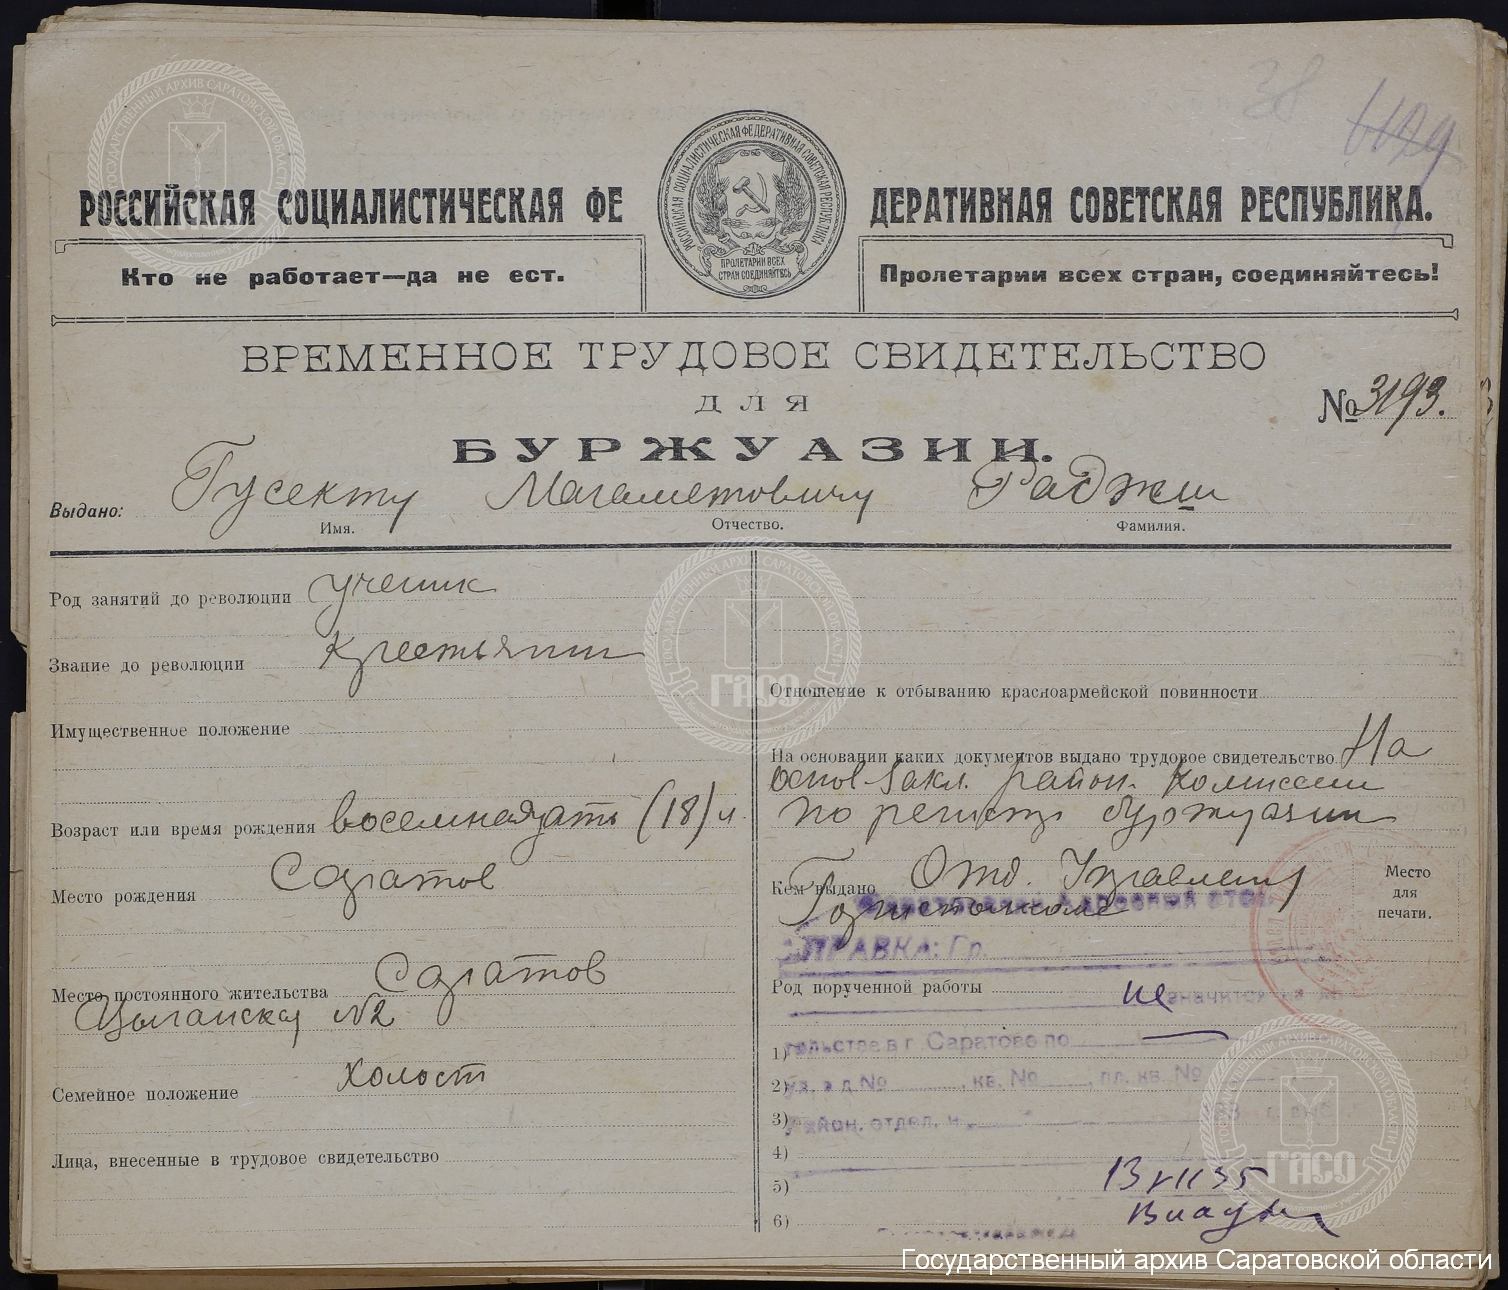 38
РОССИЙСКАЯ СОЦИАЛИСТИЧЕСКАЯ ФЕДЕРАТИВНАЯ СОВЕТСКАЯ РЕСПУБЛИКА.
РОССИЙСКАЯ СОЦИАЛИСТИЧЕСКАЯ ФЕДЕРАТИВНАЯ СОВЕТСКАЯ РЕСПУБЛИКА
ПРОЛЕТАРИИ ВСЕХ
СТРАН СОЕДИНЯЙТЕСЬ
Кто не работает—да не ест.
Пролетарии всех стран, соединяйтесь!
ВРЕМЕННОЕ ТРУДОВОЕ СВИДЕТЕЛЬСТВО
ДЛЯ
№ 3193.
БУРЖУАЗИИ.
Выдано: Гусекту Магаметовичу Раджи
Имя. Отчество. Фамилия.
Род занятий до революции ученик
Звание до революции крестьянин
Имущественное положение
Возраст или время рождения восемнадцать (18) л.
Место рождения Саратов
Место постоянного жительства Саратов
Цыганская №2
Семейное положение холост
Лица, внесенные в трудовое свидетельство
Отношение к отбыванию красноармейской повинности
На основании каких документов выдано трудовое свидетельство На
основ. закл. район. комиссии
по регистр буржуазии
Кем выдано Отд. Управлен
Горисполкома
Место
для
печати.
СПРАВКА: Гр.
Род порученной работы
не значится на жительстве в г. Саратове по
ул. в д. № , кв. № , пл. кв. №
Район. отдел. н.
1)
2)
3)
4)
5)
6)
13 VII 35
ГАСО
ГАСО
Государственный архив Саратовской области